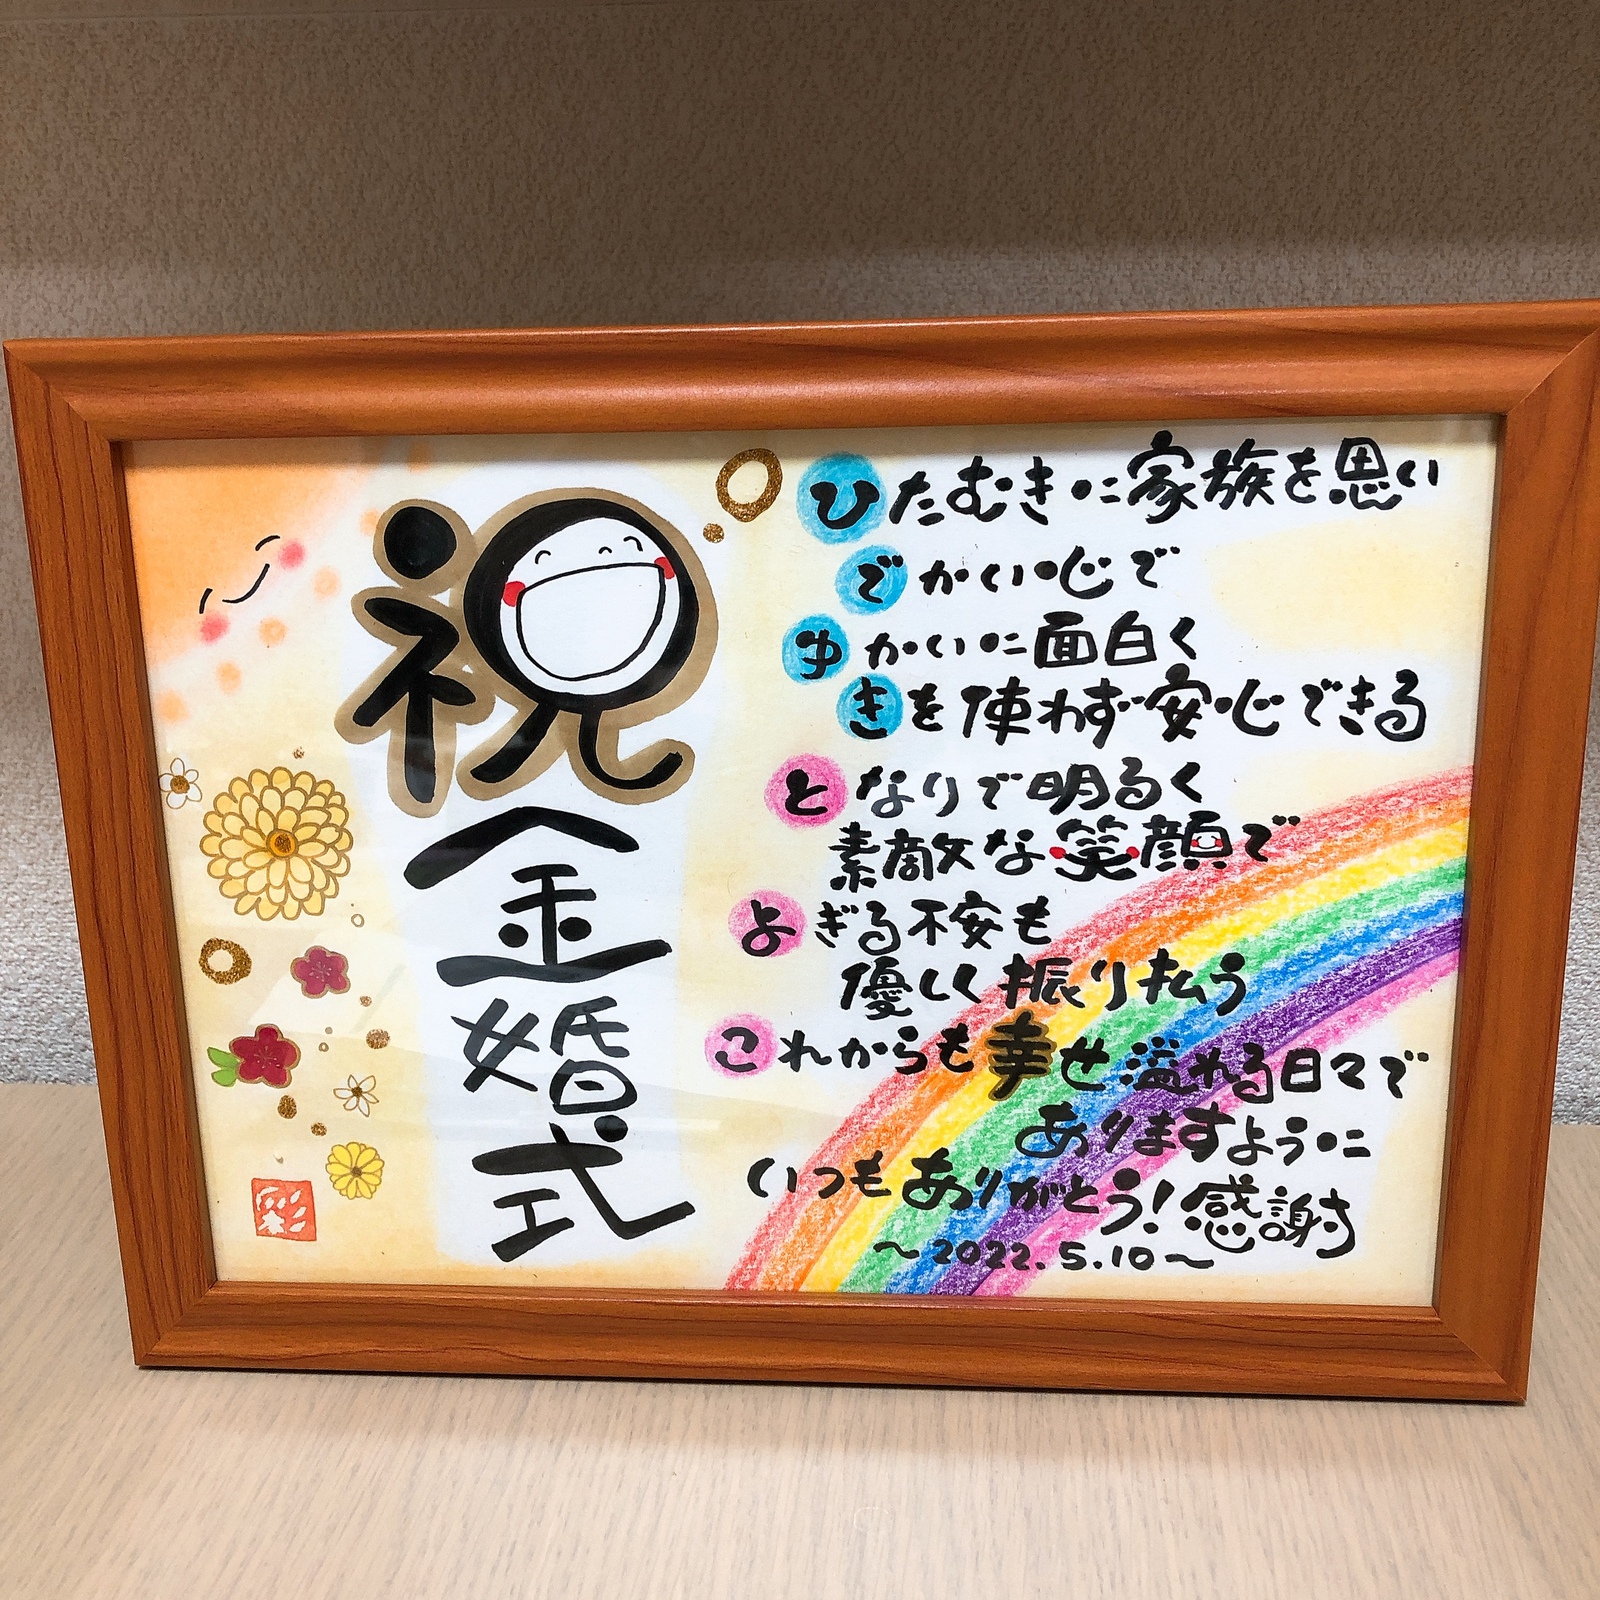 祝
金婚式
ひたむきに家族を思い
でかい心で
ゆかいに面白く
きを使わず安心できる
となりで明るく
素敵な笑顔で
よぎる不安も
優しく振り払う
これからも幸せ溢れる日々で
ありますように
いつもありがとう!感謝
~2022.5.10~
彩